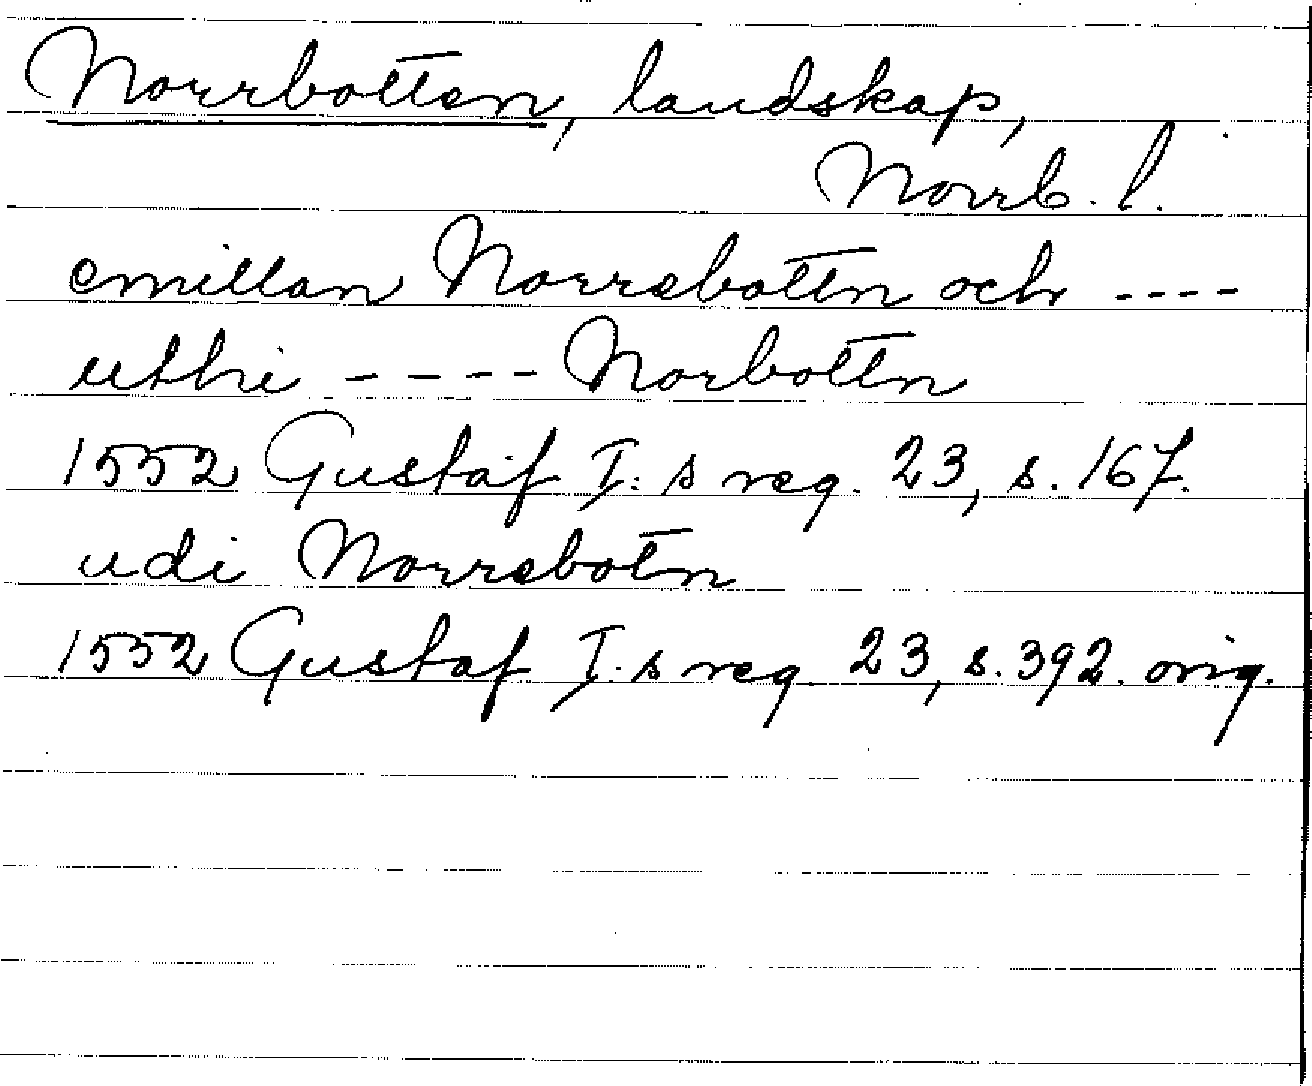 Norrbotten, landskap,
Norrb. l.
emillan Norrebottn och ----
uthi ---- Norbottn
1552 Gustaf I:s reg. 23, s. 167.
udi Norrebotn
1552 Gustaf I:s reg. 23, s. 392. orig.